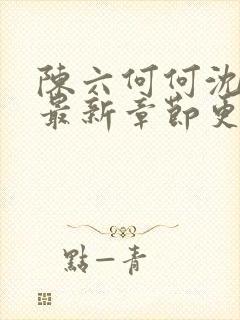 陳六何何沈
最新章節更
點一青